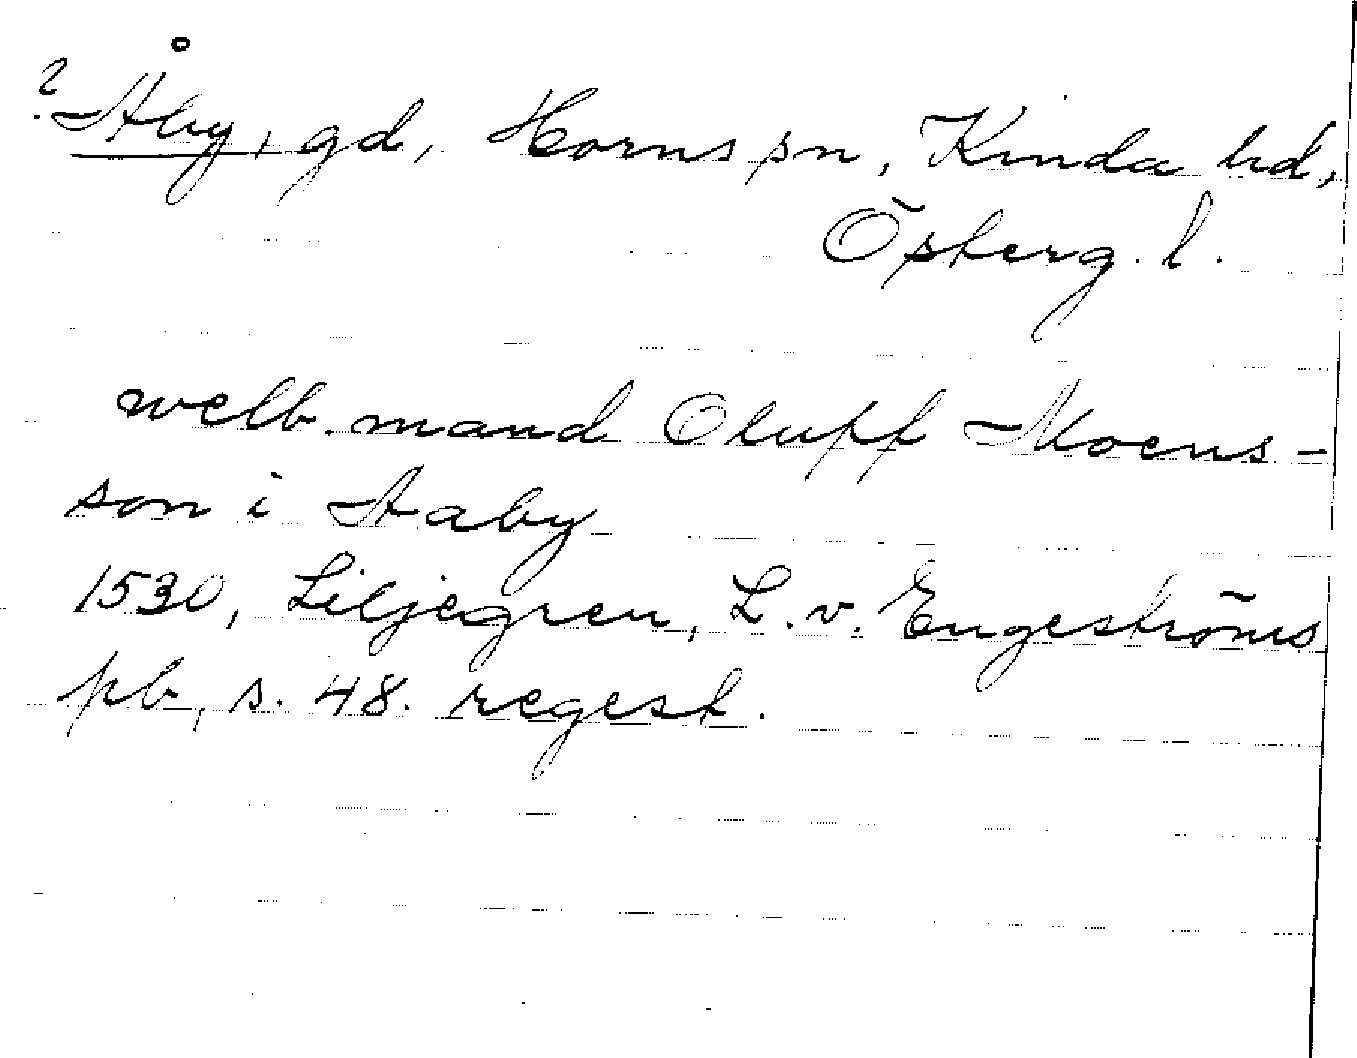 ? Åby, gd, Horns sn, Kinda hd,
Österg. l.
welb. mand Oluff Moens-
son i Aaby
1530, Liljegren, L. v. Engeströms
pb, s. 48. regest.